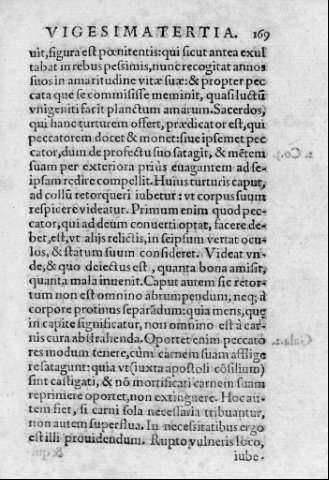 VIGESIMATERTIA. 169
uit, figura est pœnitentis: qui sicut antea exul
tabat in rebus pessimis, nunc recogitat annos
suos in amaritudine vitæ suæ: & propter pec
cata que se commisisse meminit, quasi luctũ
vnigeniti facit planctum amarum. Sacerdos,
qui hanc turturem offert, prædicator est, qui
peccatorem docet & monet: siue ipsemet pec
cator, dũm de profectu suo satagit, & mẽtem
suam per exteriora priùs euagantem ad se-
ipsam redire compellit. Huius turturis caput,
ad collũ retorqueri iubetur: vt corpus suum
respicere videatur. Primum enim quod pec-
cator, qui ad deum conuerti optat, facere de-
bet, est, vt alijs relictis, in seipsum vertat ocu-
los, & statum suum consideret. Videat vn-
de, & quo deiectus est, quanta bona amisit,
quanta mala inuenit. Caput autem sic retor-
tum non est omnino abrumpendum, neq; à
corpore protinus separãdum: quia mens, quę
in capite significatur, non omnino est à car-
nis cura abstrahenda. Oportet enim peccató
res modum tenere, cùm carnem suam afflige
re satagunt: quia vt (iuxta apostoli cõsilium)
sint castigati, & nõ mortificati carnem suam
reprimere oportet, non extinguere. Hoc au-
tem fiet, si carni sola necessaria tribuantur,
non autem superflua. In necessitatibus ergo
est illi prouidendum. Rupto vulneris loco,
iube-